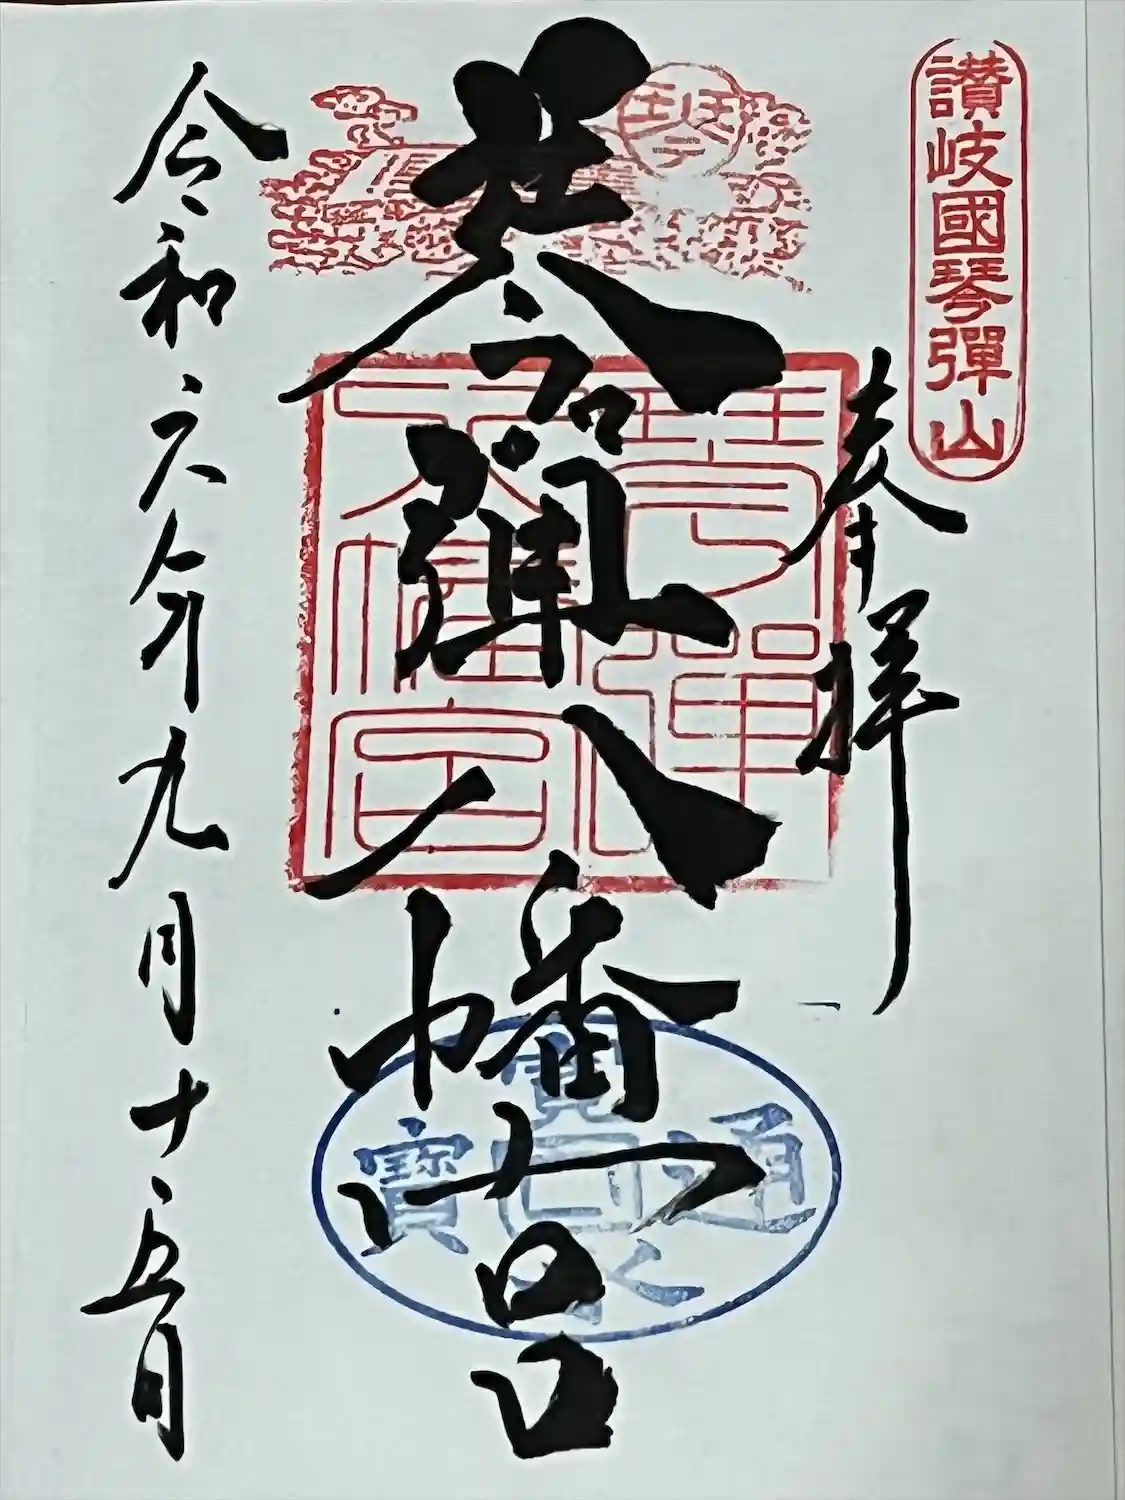 讃岐國琴彈山
奉拝
琴弾八幡宮
琴彈
八幡宮
寛永通寳
令和六年九月十五日